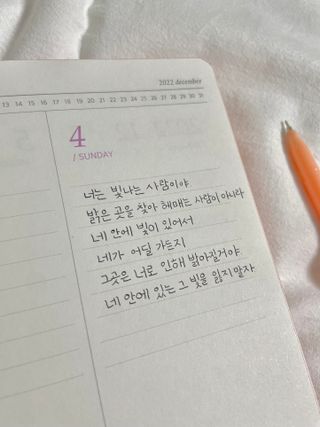 2022 december
13 14 15 16 17 18 19 20 21 22 23 24 25 26 27 28 29 30 31
4
/ SUNDAY
너는 빛나는 사람이야
밝은 곳을 찾아 헤매는 사람이 아니라
네 안에 빛이 있어서
네가 어딜 가든지
그곳은 너로 인해 밝아질거야
네 안에 있는 그 빛을 잃지말자